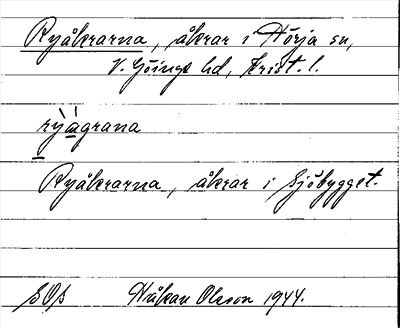 Ryåkrarna, åkrar i Hörja sn,
V. Göinge hd, Krist. l.
rỳ̱àgrana
Ryåkrarna, åkrar i Sjöbygget.
SOS Håkan Olsson 1944.